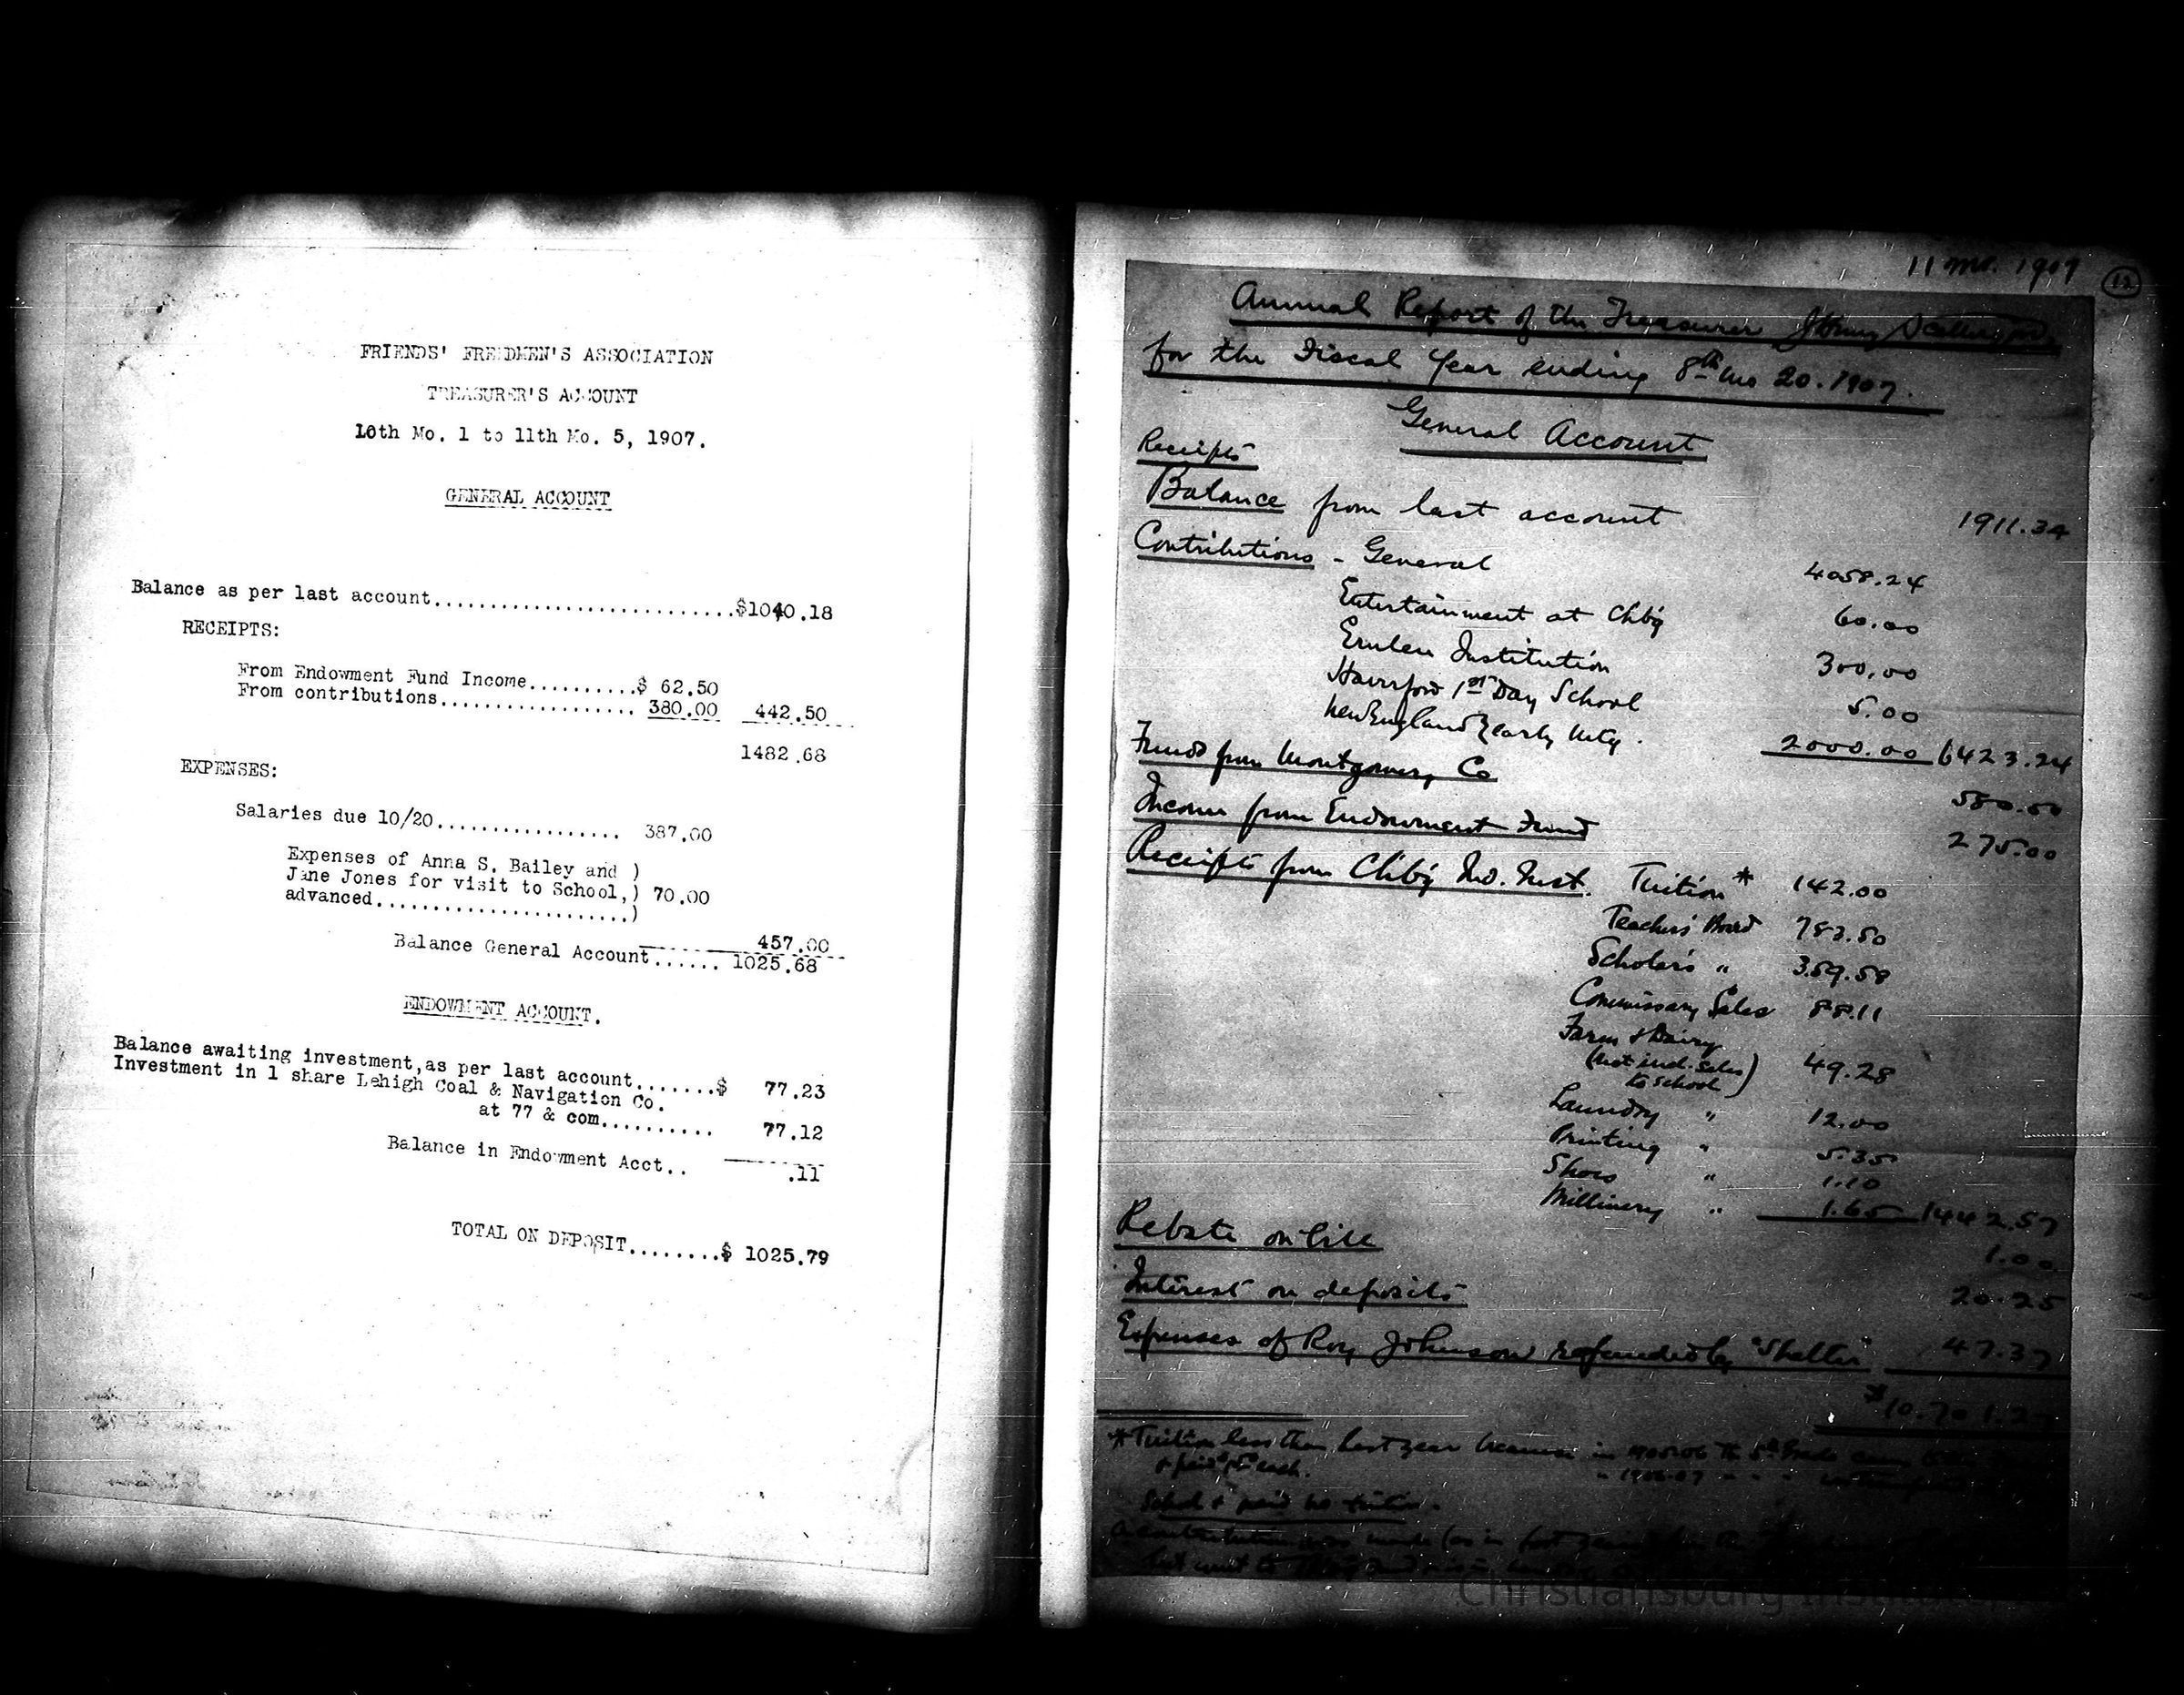 FRIENDS' FREEDMEN'S ASSOCIATION
TREASURER'S ACCOUNT
10th Mo. 1 to 11th Mo. 5, 1907.
GENERAL ACCOUNT
Balance as per last account...........................$1040.18
RECEIPTS:
From Endowment Fund Income..........$ 62.50
From contributions.................. 380.00 442.50
1482.68
EXPENSES:
Salaries due 10/20................. 387.00
Expenses of Anna S. Bailey and )
Jane Jones for visit to School,) 70.00
advanced.......................)
457.00
Balance General Account...... 1025.68
ENDOWMENT ACCOUNT.
Balance awaiting investment,as per last account.......$ 77.23
Investment in 1 share Lehigh Coal & Navigation Co.
at 77 & com.......... 77.12
Balance in Endowment Acct.. .11
TOTAL ON DEPOSIT........$ 1025.79
11 mo. 1907 12
Annual Report of the Treasurer
for the Fiscal Year ending 8th mo 20. 1907.
General Account
Receipts
Balance from last account 1911.34
Contributions - General 4058.24
Entertainment at Chbg 60.00
Emlen Institution 300.00
Haverford 1st Day School 5.00
New England Yearly Mtg. 2000.00 6423.24
Funds from Montgomery Co 580.50
Income from Endowment Fund 275.00
Receipts from Chbg Ind. Inst. Tuition* 142.00
Teachers' Board 783.50
Scholars " 359.58
Commissary Sales 88.11
Farm & Dairy
(not incl. sales) 49.28
to school
Laundry " 12.00
Printing " 5.35
Shoes " 1.10
Millinery " 1.65 1442.57
Rebate on bill 1.00
Interest on deposits 20.25
Expenses of Roy Johnson refunded by "Shelter" 47.37
$10.701.27
*Tuition less than last year because in 1905-06 the 5th Grade
& paid each. " 1906-07 " "
School & paid no tuition.
Christiansburg Institute